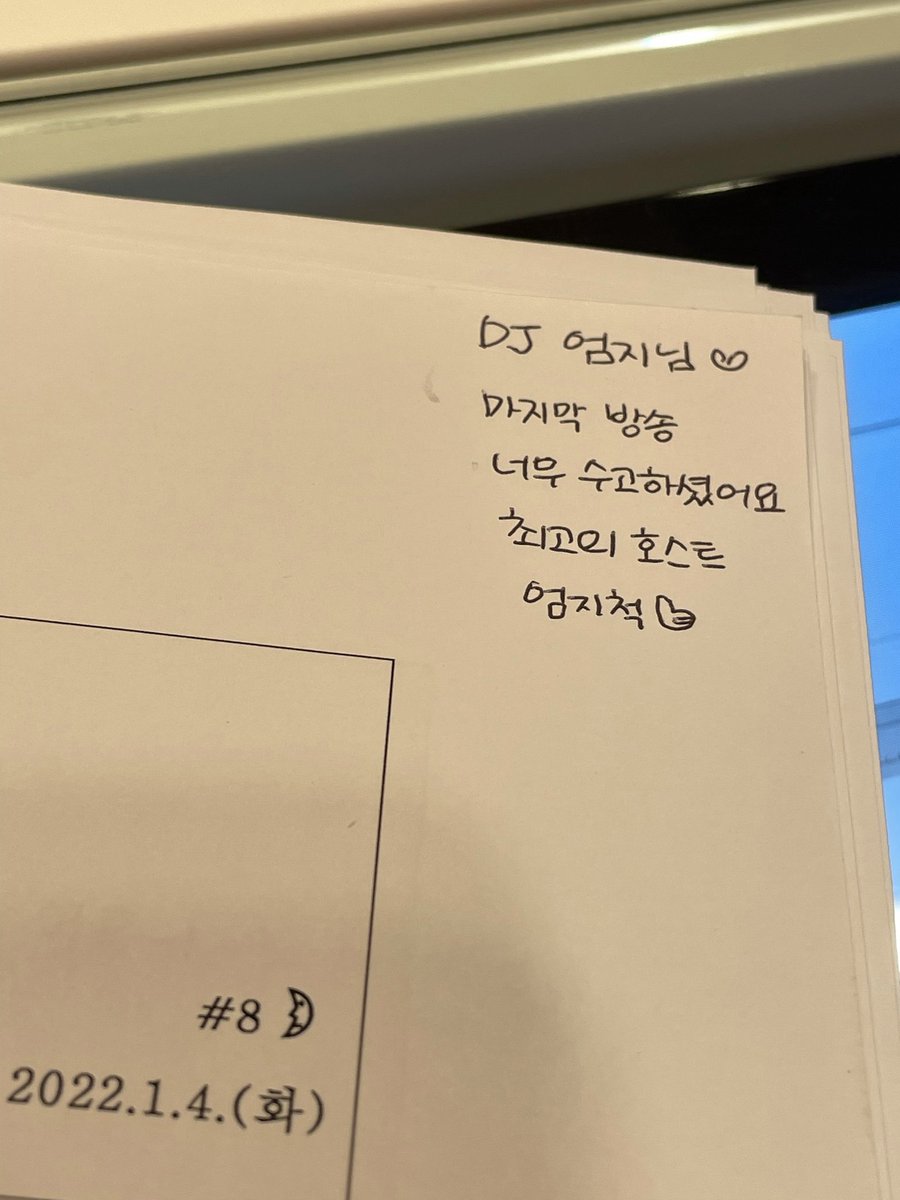 DJ 엄지님♡
마지막 방송
너무 수고하셨어요
최고의 호스트
엄지척👍
#8
2022.1.4.(화)